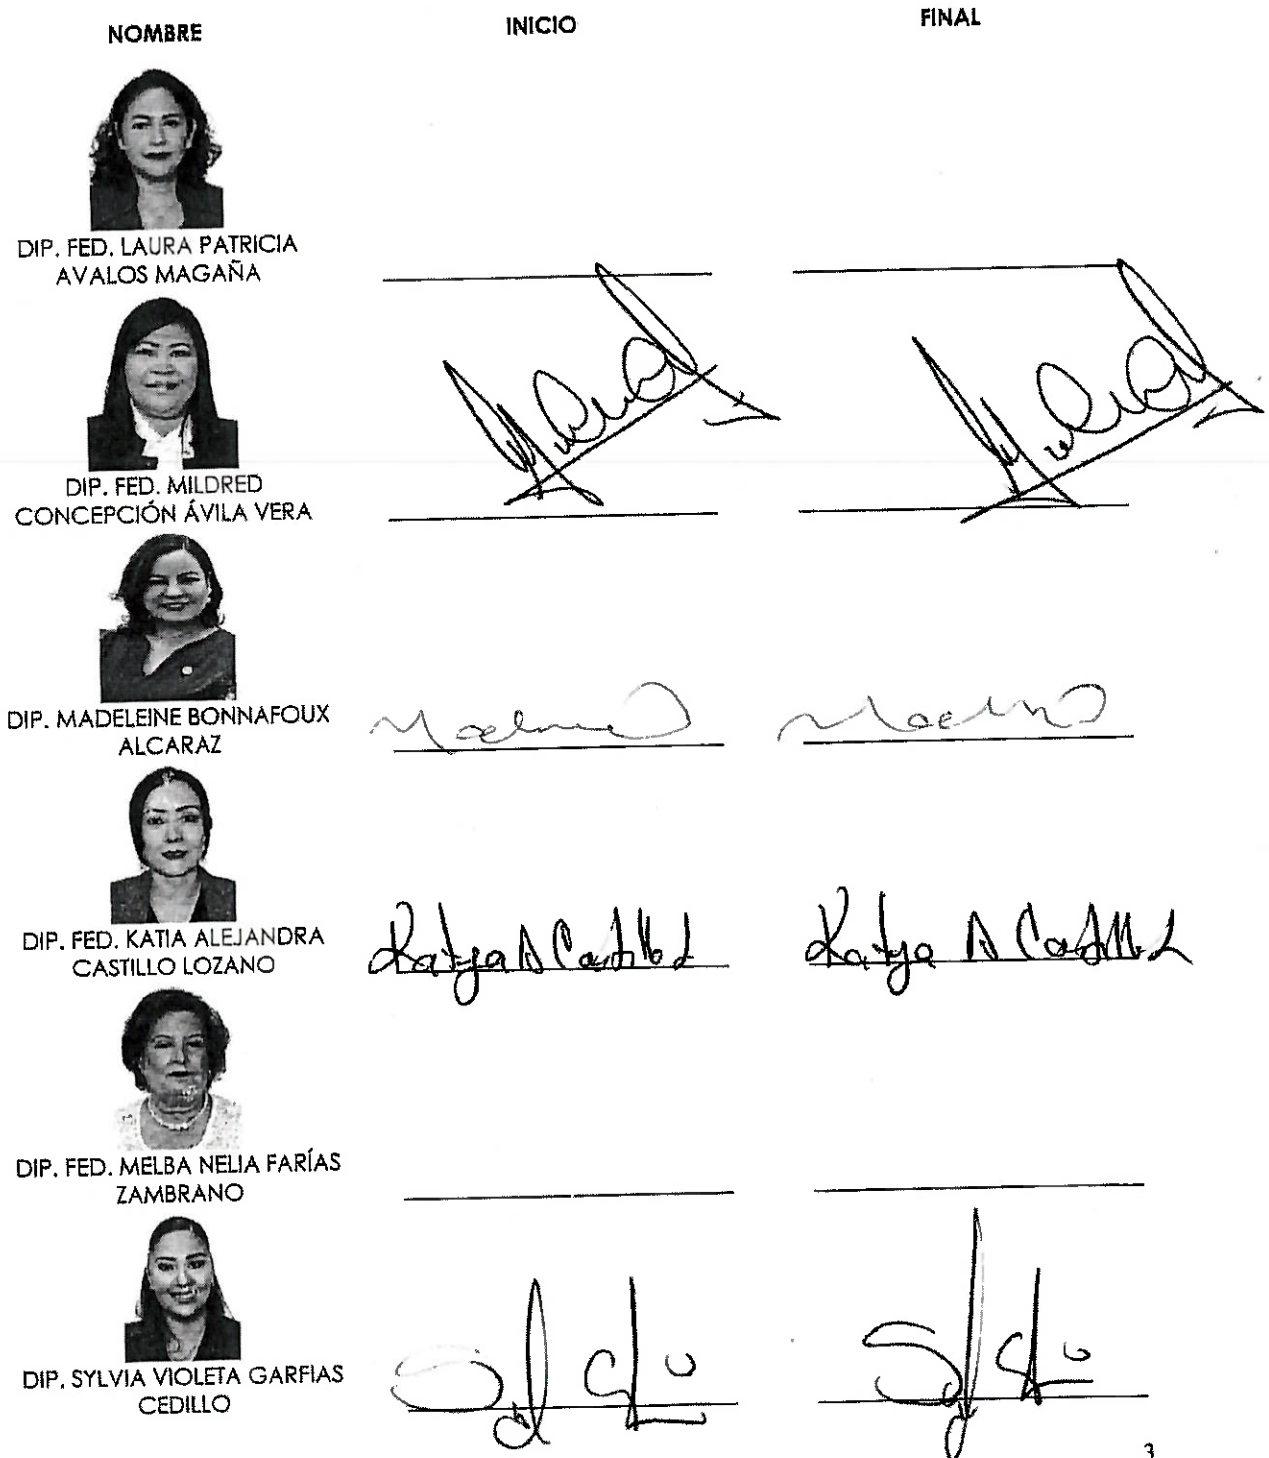 NOMBRE
INICIO
FINAL
DIP. FED. LAURA PATRICIA
AVALOS MAGAÑA
DIP. FED. MILDRED
CONCEPCIÓN ÁVILA VERA
DIP. MADELEINE BONNAFOUX
ALCARAZ
DIP. FED. KATIA ALEJANDRA
CASTILLO LOZANO
Katya A Castillo L
Katya A Castillo L
DIP. FED. MELBA NELIA FARÍAS
ZAMBRANO
DIP. SYLVIA VIOLETA GARFIAS
CEDILLO
3